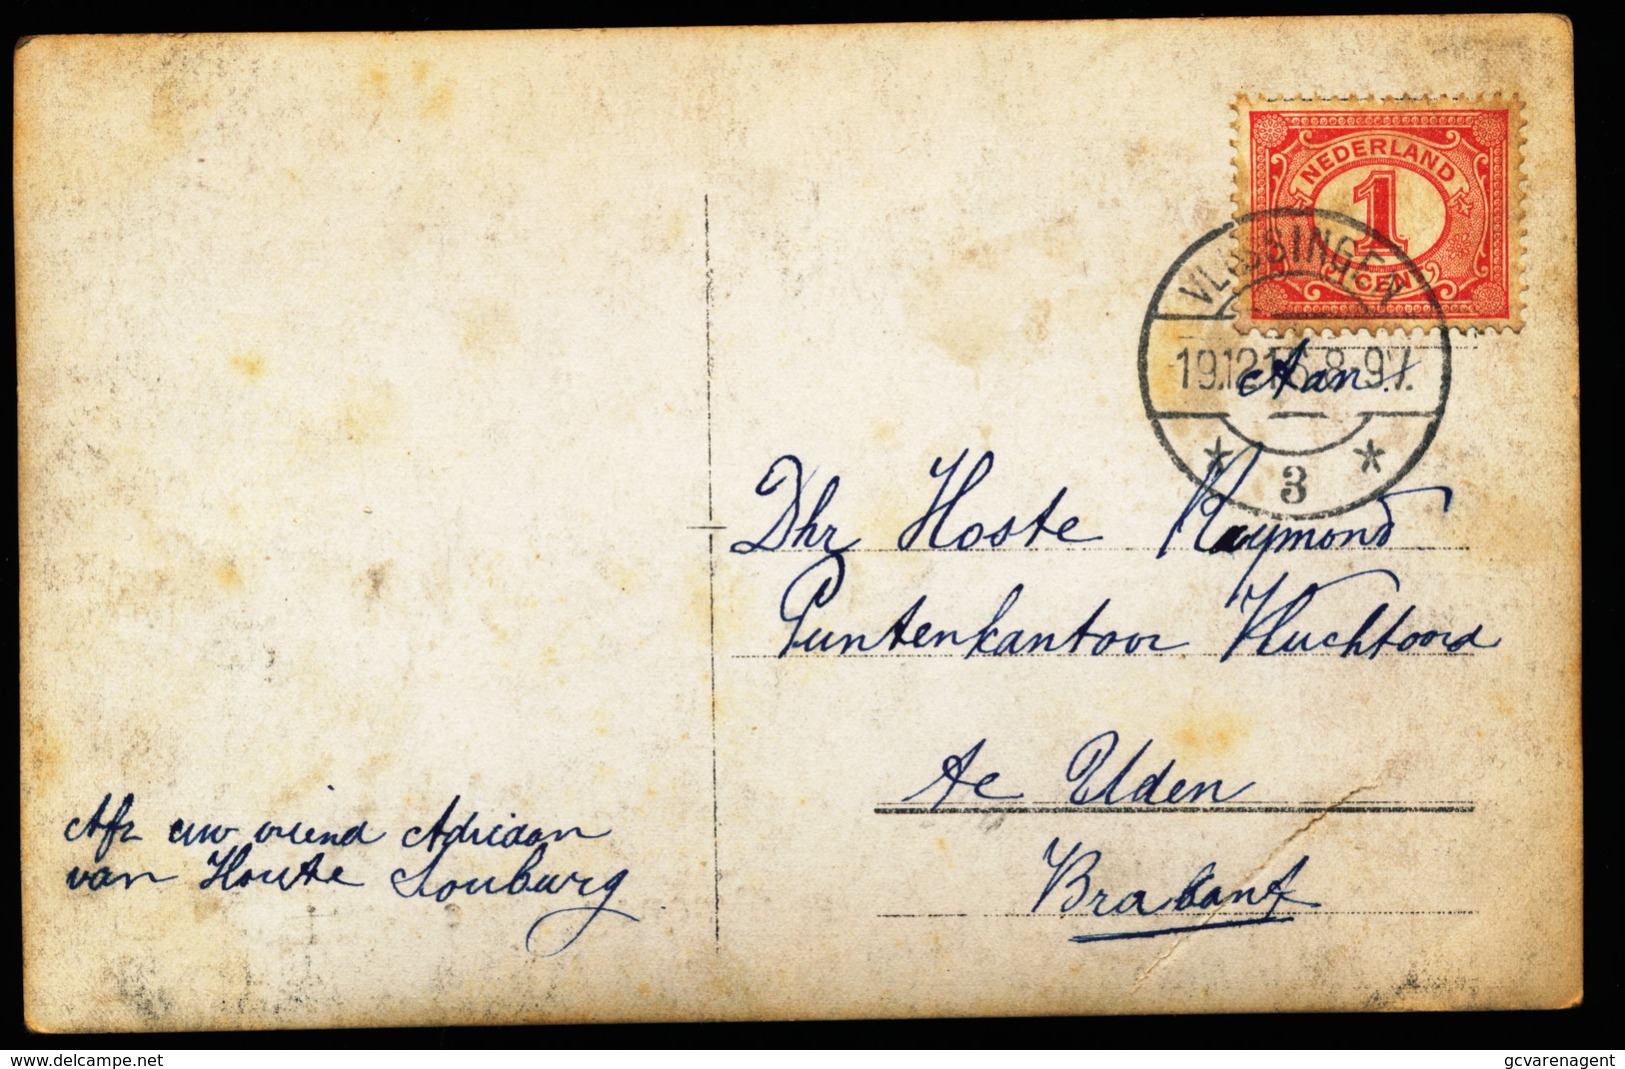 NEDERLAND
1
CENT
VLISSINGEN
19.12.16.8-9V.
3
Aan
Dhr Hoste Raymond
Puntenkantoor Vluchtoord
te Uden
Brabant
Afz uw vriend Adriaan
van Houte Souburg
delcampe.net
gcvarenagent